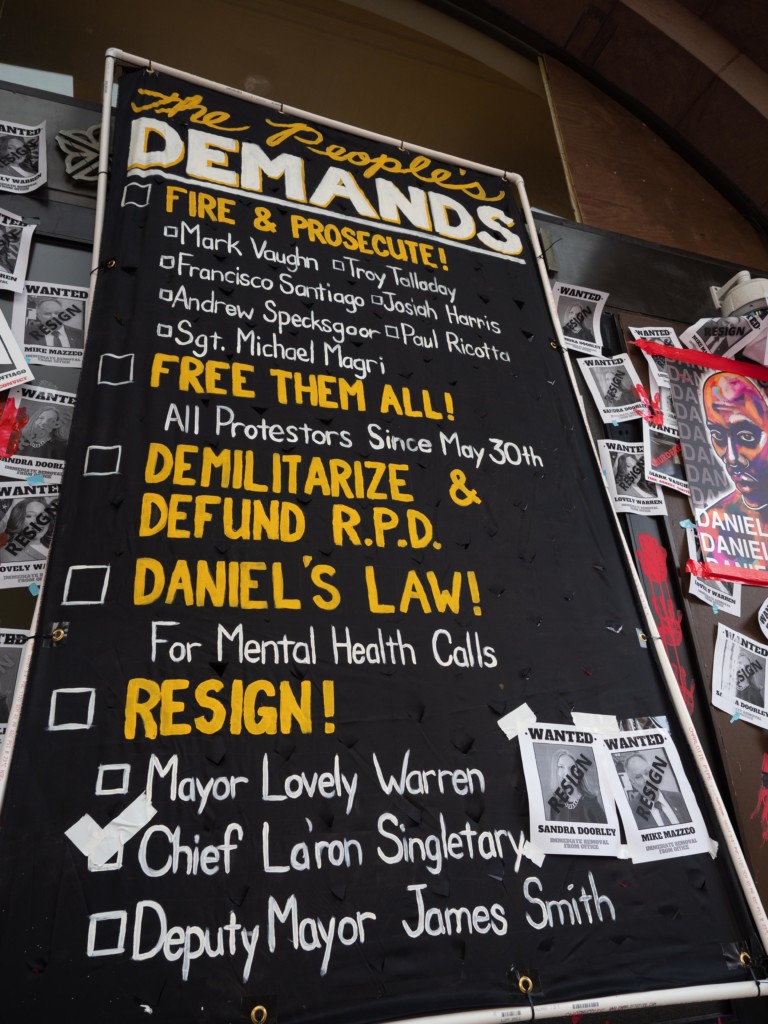 The People's
DEMANDS
FIRE & PROSECUTE!
Mark Vaughn Troy Talladay
Francisco Santiago Josiah Harris
Andrew Specksgoor Paul Ricotta
Sgt. Michael Magri
FREE THEM ALL!
All Protestors Since May 30th
DEMILITARIZE &
DEFUND R.P.D.
DANIEL'S LAW!
For Mental Health Calls
RESIGN!
Mayor Lovely Warren
Chief La'ron Singletary
Deputy Mayor James Smith
WANTED
RESIGN
SANDRA DOORLEY
IMMEDIATE REMOVAL
FROM OFFICE
WANTED
RESIGN
MIKE MAZZEO
IMMEDIATE REMOVAL
FROM OFFICE
WANTED
LOVELY WARREN
WANTED
RESIGN
MIKE MAZZEO
WANTED
SANDRA DOORLEY
WANTED
RESIGN
LOVELY WARREN
WANTED
RESIGN
WANTED
RESIGN
SANDRA DOORLEY
WANTED
RESIGN
LOVELY WARREN
WANTED
MARK VAUGHN
DANIEL
DANIEL
DANIEL
WANTED